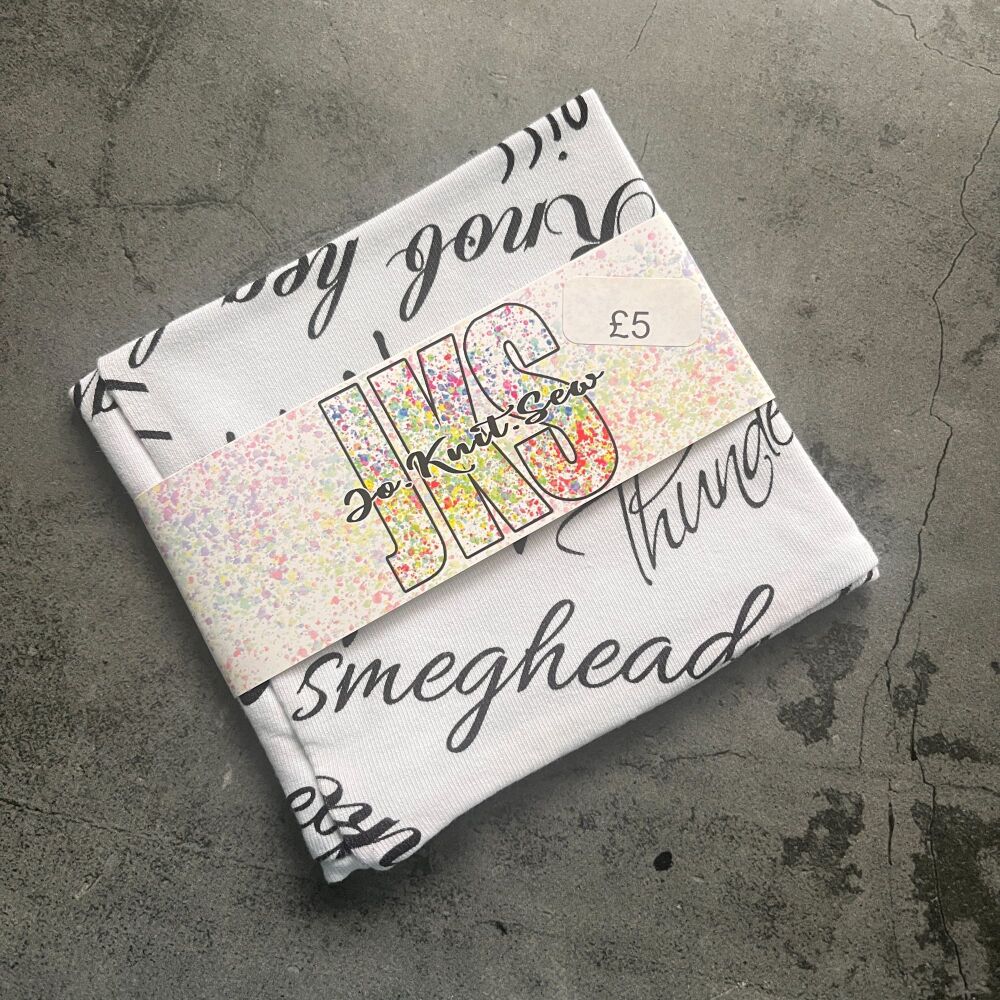 Knob hea
£5
JKS
Jo.Knit.Sew
Thunde
smeghead